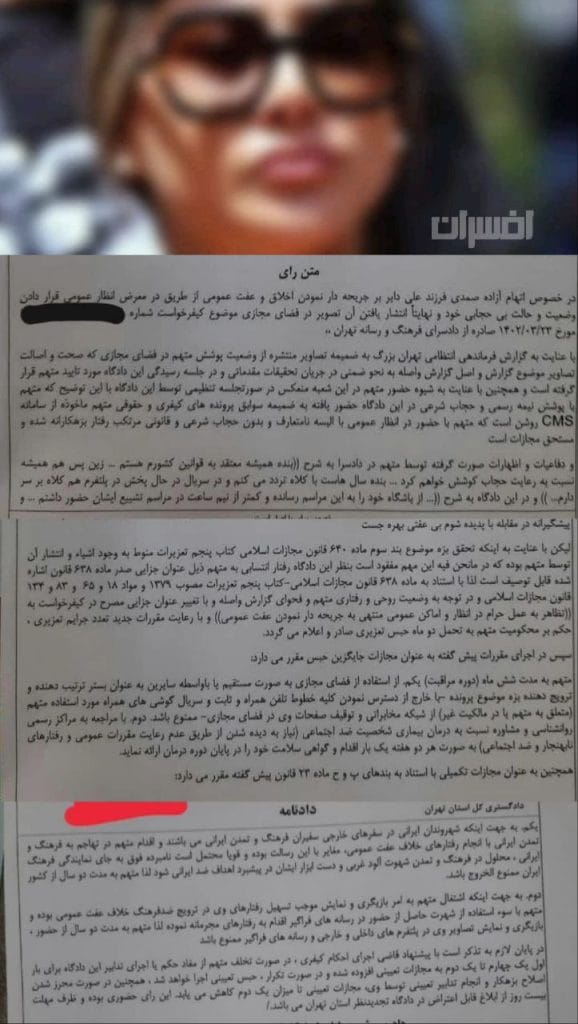 افسران
متن رای
در خصوص اتهام آزاده صمدی فرزند علی دایر بر جریحه دار نمودن اخلاق و عفت عمومی از طریق در معرض انظار عمومی قرار دادن
وضعیت و حالت بی حجابی خود و نهایتاً انتشار یافتن آن تصویر در فضای مجازی موضوع کیفرخواست شماره
مورخ ۱۴۰۲/۰۳/۲۳ صادره از دادسرای فرهنگ و رسانه تهران ،،
با عنایت به گزارش فرماندهی انتظامی تهران بزرگ به ضمیمه تصاویر منتشره از وضعیت پوشش متهم در فضای مجازی که صحت و اصالت
تصاویر موضوع گزارش و اصل گزارش واصله به نحو ضمنی در جریان تحقیقات مقدماتی و در جلسه رسیدگی این دادگاه مورد تایید متهم قرار
گرفته است و همچنین با عنایت به شیوه حضور متهم در این شعبه منعکس در صورتجلسه تنظیمی توسط این دادگاه با این توضیح که متهم
با پوشش نیمه رسمی و حجاب شرعی در این دادگاه حضور یافته به ضمیمه سوابق پرونده های کیفری و حقوقی متهم ماخوذه از سامانه
CMS روشن است که متهم با حضور در انظار عمومی با البسه نامتعارف و بدون حجاب شرعی و قانونی مرتکب رفتار بزهکارانه شده و
مستحق مجازات است
و دفاعیات و اظهارات صورت گرفته توسط متهم در دادسرا به شرح ((بنده همیشه معتقد به قوانین کشورم هستم ... زین پس هم همیشه
نسبت به رعایت حجاب کوشش خواهم کرد ... بنده سال هاست با کلاه تردد می کنم و در سریال در حال پخش در پلتفرم هم کلاه بر سر
دارم... )) و در این دادگاه به شرح ((... از باشگاه خود را به این مراسم رسانده و کمتر از نیم ساعت در مراسم تشییع ایشان حضور داشتم ... و
پیشگیرانه در مقابله با پدیده شوم بی عفتی بهره جست
لیکن با عنایت به اینکه تحقق بزه موضوع بند سوم ماده ۶۴۰ قانون مجازات اسلامی کتاب پنجم تعزیرات منوط به وجود اشیاء و انتشار آن
توسط متهم بوده که در مانحن فیه این مهم مفقود است بنظر این دادگاه رفتار انتسابی به متهم ذیل عنوان جزایی صدر ماده ۶۳۸ قانون اشاره
شده قابل توصیف است لذا با استناد به ماده ۶۳۸ قانون مجازات اسلامی-کتاب پنجم تعزیرات مصوب ۱۳۷۹ و مواد ۱۸ و ۶۵ و ۸۳ و ۱۳۴
قانون مجازات اسلامی و در توجه به وضعیت روحی و رفتاری متهم و فحوای گزارش واصله و با تغییر عنوان جزایی مصرح در کیفرخواست به
((تظاهر به عمل حرام در انظار و اماکن عمومی منتهی به جریحه دار نمودن عفت عمومی)) و با رعایت مقررات جدید تعدد جرایم تعزیری ،
حکم بر محکومیت متهم به تحمل دو ماه حبس تعزیری صادر و اعلام می گردد.
سپس در اجرای مقررات پیش گفته به عنوان مجازات جایگزین حبس مقرر می دارد:
متهم به مدت شش ماه (دوره مراقبت) یکم. از استفاده از فضای مجازی به صورت مستقیم یا باواسطه سایرین به عنوان بستر ترتیب دهنده و
ترویج دهنده بزه موضوع پرونده -با خارج از دسترس نمودن کلیه خطوط تلفن همراه و ثابت و سریال گوشی های همراه مورد استفاده متهم
(متعلق به متهم یا در مالکیت غیر) از شبکه مخابراتی و توقیف صفحات وی در فضای مجازی- ممنوع باشد. دوم. با مراجعه به مراکز رسمی
روانشناسی و مشاوره نسبت به درمان بیماری شخصیت ضد اجتماعی (نیاز به دیده شدن از طریق عدم رعایت مقررات عمومی و رفتارهای
نابهنجار و ضد اجتماعی) به صورت هر دو هفته یک بار اقدام و گواهی سلامت خود را در پایان دوره درمان ارائه نماید.
همچنین به عنوان مجازات تکمیلی با استناد به بندهای پ و ح ماده ۲۳ قانون پیش گفته مقرر می دارد:
دادگستری کل استان تهران
دادنامه
یکم. به جهت اینکه شهروندان ایرانی در سفرهای خارجی سفیران فرهنگ و تمدن ایرانی می باشند و اقدام متهم در تهاجم به فرهنگ و
تمدن ایرانی با انجام رفتارهای خلاف عفت عمومی، مغایر با این رسالت بوده و قویا محتمل است نامبرده فوق به جای نمایندگی فرهنگ
ایرانی ، محلول در فرهنگ و تمدن شهوت آلود غربی و دست ابزار ایشان در پیشبرد اهداف ضد ایرانی شود لذا متهم به مدت دو سال از کشور
ایران ممنوع الخروج باشد.
دوم. به جهت اینکه اشتغال متهم به امر بازیگری و نمایش موجب تسهیل رفتارهای وی در ترویج ضدفرهنگ خلاف عفت عمومی بوده و
متهم با سوء استفاده از شهرت حاصل از حضور در رسانه های فراگیر اقدام به رفتارهای مجرمانه نموده لذا متهم به مدت دو سال از حضور ،
بازیگری و نمایش تصاویر وی در پلتفرم های داخلی و خارجی و رسانه های فراگیر ممنوع باشد
در پایان لازم به تذکر است با پیشنهاد قاضی اجرای احکام کیفری، در صورت تخلف متهم از مفاد حکم یا اجرای تدابیر این دادگاه برای بار
اول یک چهارم تا یک دوم به مجازات تعیینی افزوده شده و در صورت تکرار ، حبس تعیینی اجرا خواهد شد ، همچنین در صورت محرز شدن
اصلاح بزهکار و انجام تدابیر تعیینی توسط وی، مجازاتی تعیینی تا میزان یک دوم کاهش می یابد. این رای حضوری بوده و ظرف مهلت
بیست روز از ابلاغ قابل اعتراض در دادگاه تجدیدنظر استان تهران می باشد./